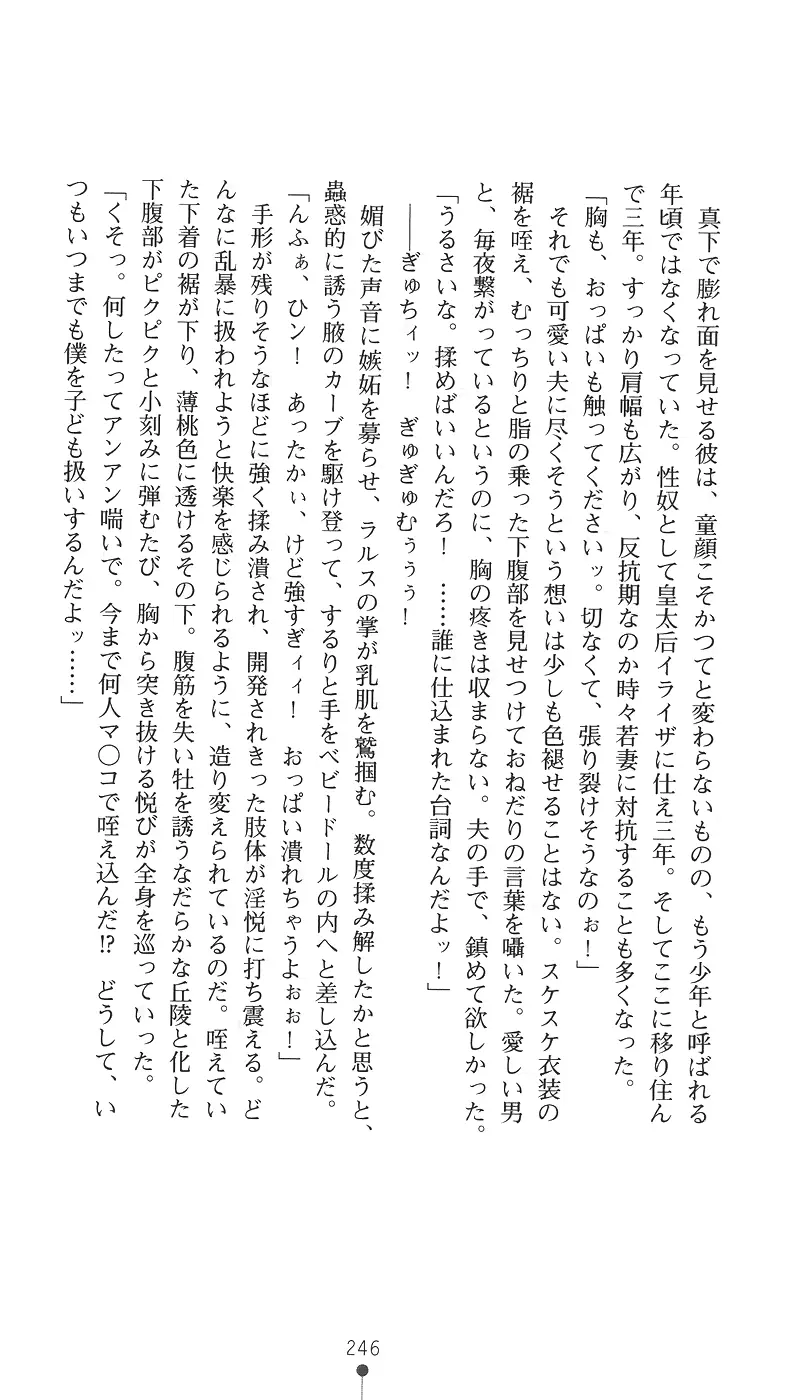 真下で膨れ面を見せる彼は、童顔こそかつてと変わらないものの、もう少年と呼ばれる
年頃ではなくなっていた。性奴として皇太后イライザに仕え三年。そしてここに移り住ん
で三年。すっかり肩幅も広がり、反抗期なのか時々若妻に対抗することも多くなった。
「胸も、おっぱいも触ってくださいッ。切なくて、張り裂けそうなのぉ!」
それでも可愛い夫に尽くそうという想いは少しも色褪せることはない。スケスケ衣装の
裾を咥え、むっちりと脂の乗った下腹部を見せつけておねだりの言葉を囁いた。愛しい男
と、毎夜繋がっているというのに、胸の疼きは収まらない。夫の手で、鎮めて欲しかった。
「うるさいな。揉めばいいんだろ! ……誰に仕込まれた台詞なんだよッ!」
――ぎゅちィッ! ぎゅぎゅむぅぅぅ!
媚びた声音に嫉妬を募らせ、ラルスの掌が乳肌を鷲掴む。数度揉み解したかと思うと、
蟲惑的に誘う腋のカーブを駆け登って、するりと手をベビードールの内へと差し込んだ。
「んふぁ、ひン! あったかぃ、けど強すぎィィ! おっぱい潰れちゃうよぉぉ!」
手形が残りそうなほどに強く揉み潰され、開発されきった肢体が淫悦に打ち震える。ど
んなに乱暴に扱われようと快楽を感じられるように、造り変えられているのだ。咥えてい
た下着の裾が下り、薄桃色に透けるその下。腹筋を失い牡を誘うなだらかな丘陵と化した
下腹部がピクピクと小刻みに弾むたび、胸から突き抜ける悦びが全身を巡っていった。
「くそっ。何したってアンアン喘いで。今まで何人マ〇コで咥え込んだ!? どうして、い
つもいつまでも僕を子ども扱いするんだよッ……」
246